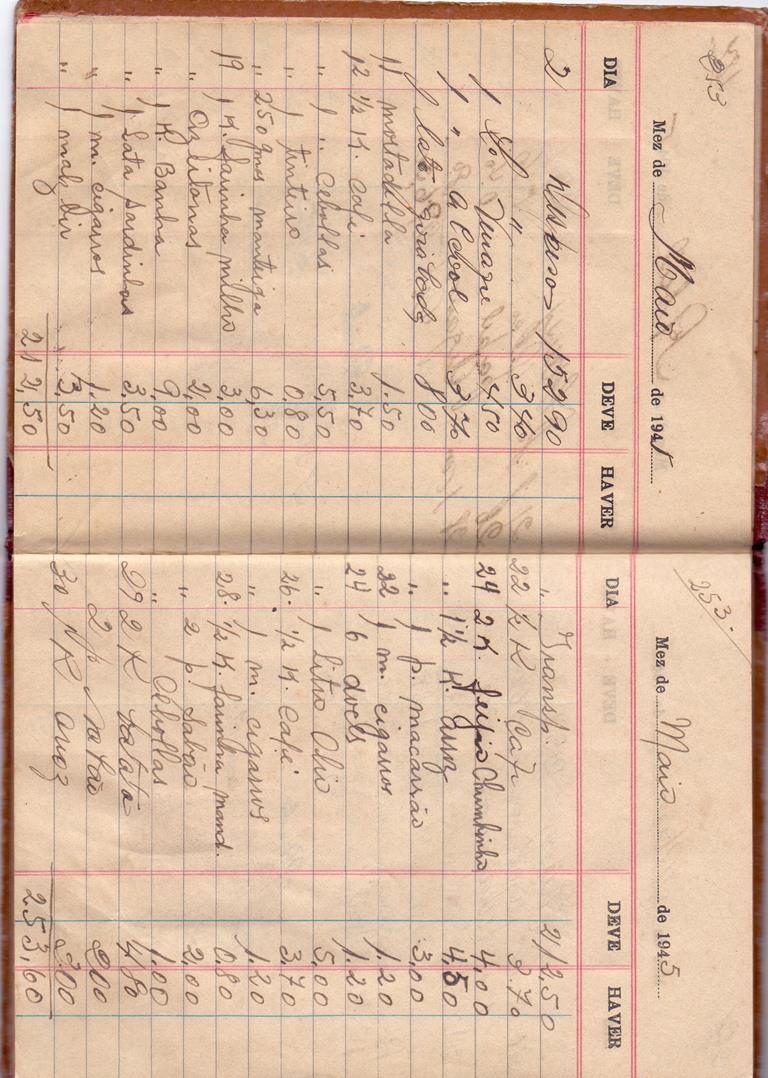 253
Mez de Maio de 1945
DIA DEVE HAVER
2 152,90
" 3,40
1 4,50
1 " Alcool 3,70
1 lata 8,00
11 mortadella 1.50
12 1/2 K. Café 3,70
" 1 " Cebollas 5,50
" 1 tinteiro 0,80
" 250 gms manteiga 6,30
19 1 K. farinha milho 3,00
" Azeitonas 2,00
" 1 K. Banha 9,00
" 1 Lata sardinhas 3,50
" 1 m. cigarros 1,20
" 1 3,50
212,50
253.
Mez de Maio de 1945
DIA DEVE HAVER
" Transp. 212,50
22 1/2 K Café 3.70
24 2 K. feijão Chumbinho 4,00
" 1 1/2 K. arroz 4,50
" 1 p. macarrão 3,00
22 1 m. cigarros 1.20
24 6 doces 1.20
" 1 litro Olio 5,00
26. 1/2 K. Café 3.70
" 1 m. cigarros 1.20
28. 1/2 K. farinha mand. 0.80
" 2 p. Sabão 2,00
" Cebollas 1.00
29 2 K batata 4,80
2 p
30 K arroz 3.00
253,60